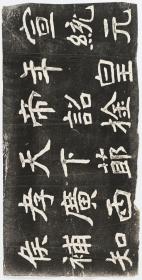 宣統元
年皇
帝詔旌
天下節
孝廣西
候補知